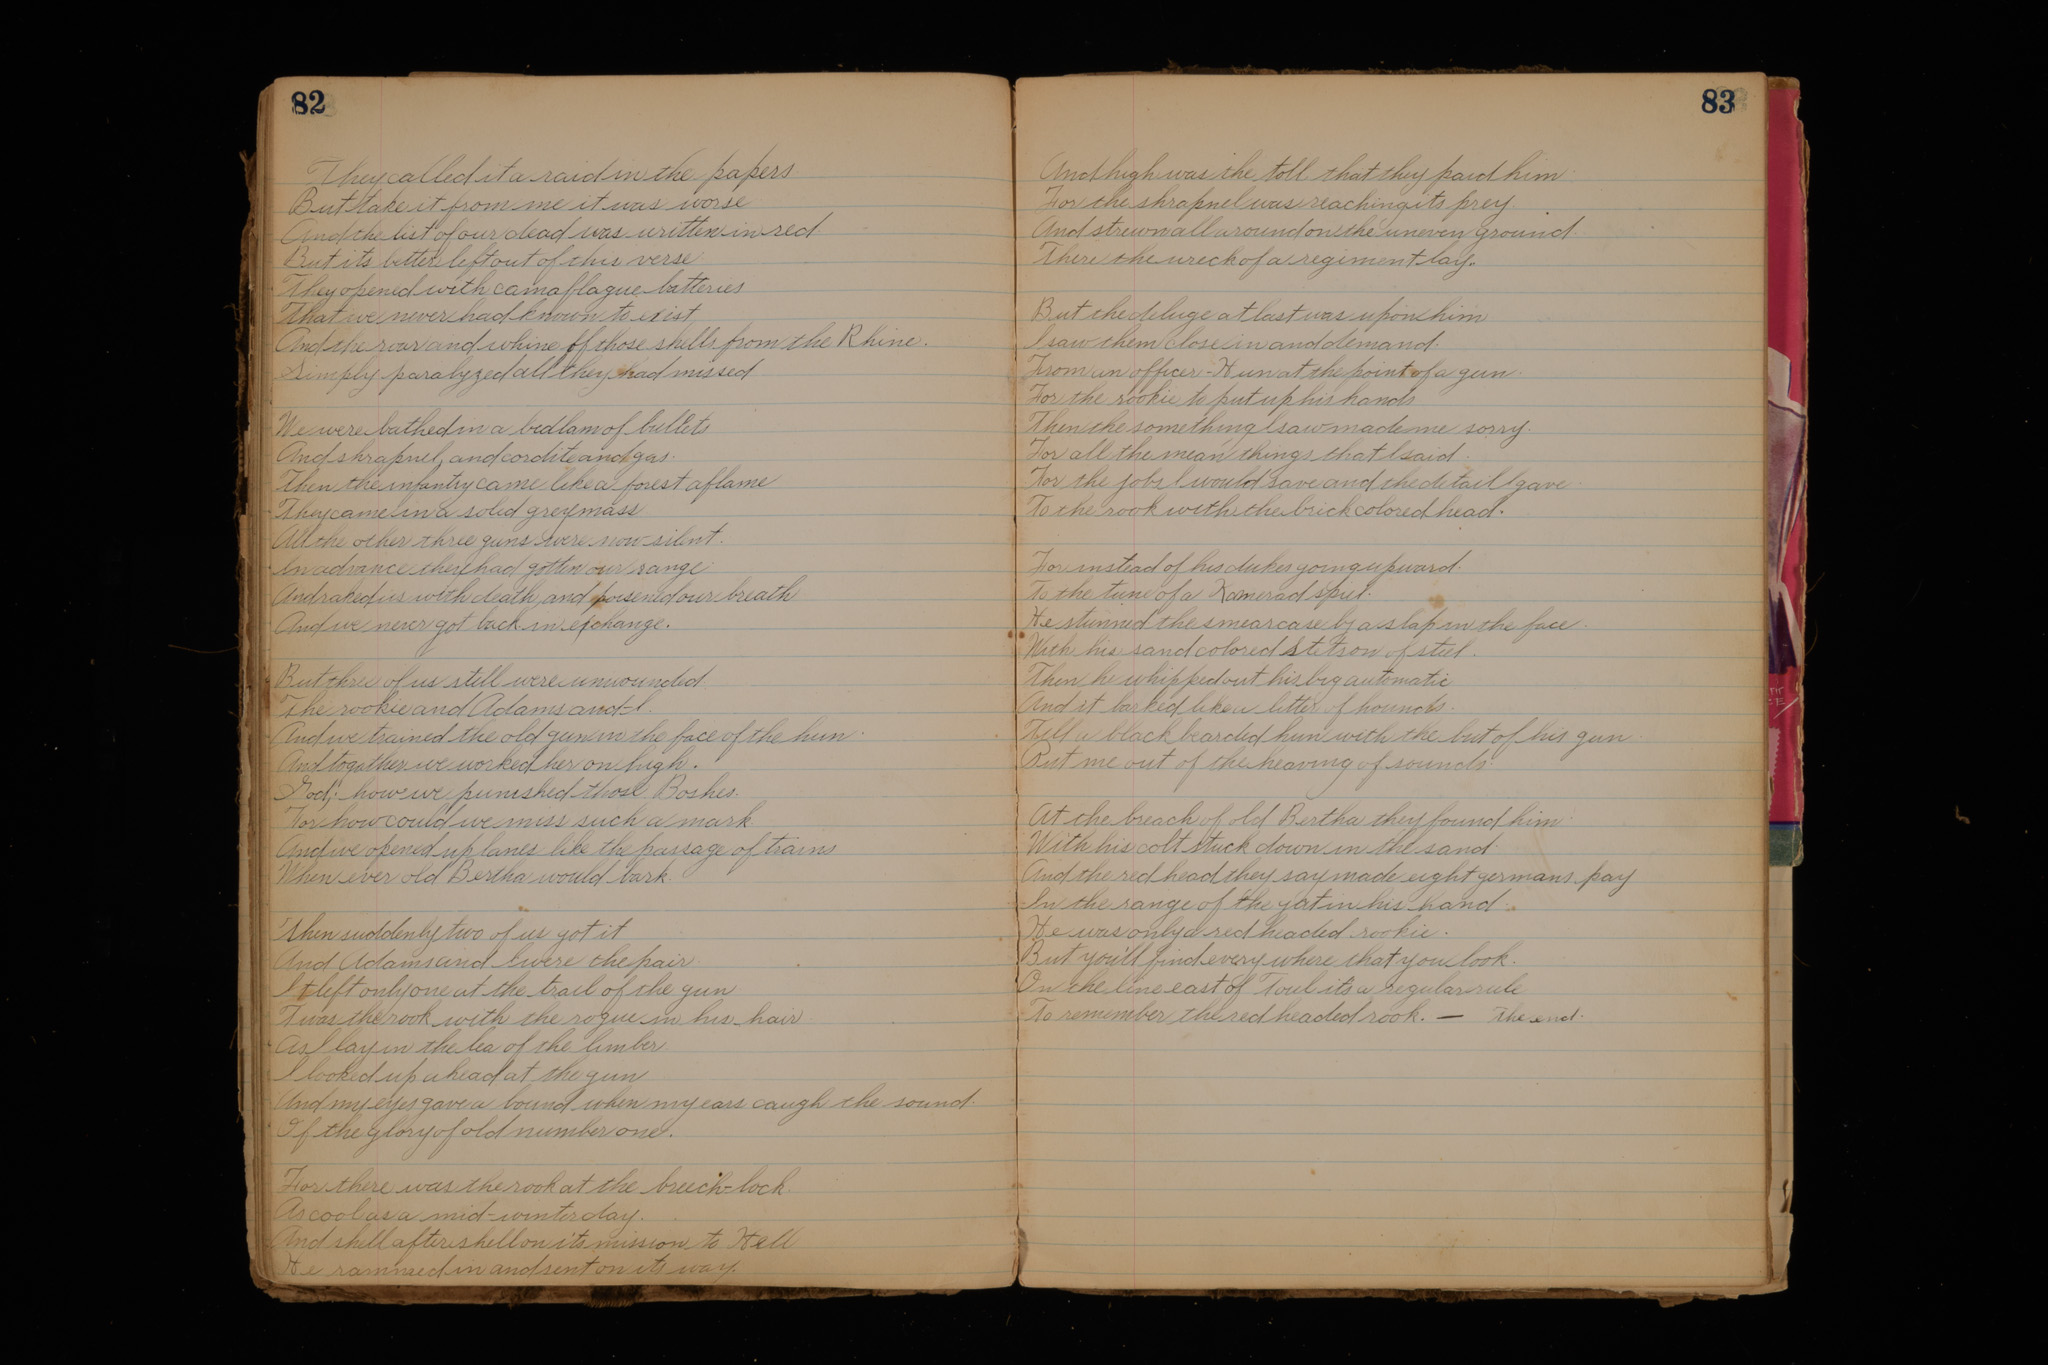 82
They called it a raid in the papers
But take it from me it was worse
And the list of our dead was written in red
But its better left out of this verse
They opened with camaflague batteries
That we never had known to exist
And the roar and whine of those shells from the Rhine.
Simply paralyzed all they had missed
We were bathed in a bedlam of bullets
And shrapnel, and cordite and gas.
Then the infantry came like a forest aflame
They came in a solid grey mass
All the other three guns were now silent.
In advance they had gotten our range
And raked us with death and poisened our breath
And we never got back in exchange.
But three of us still were unwounded
The rookie and Adams and I.
And we trained the old gun in the face of the hun.
And together we worked her on high.
God; how we punished those Boshes.
For how could we miss such a mark
And we opened up lanes like the passage of trains
When ever old Bertha would bark
Then suddenly two of us got it
And Adams and I were the pair
It left only one at the trail of the gun
Twas the rook with the rogue in his hair
As I lay in the lea of the limber
I looked up ahead at the gun
And my eyes gave a bound when my ears caugh the sound.
Of the glory of old number one.
For there was the rook at the breech-lock
As cool as a mid-winter day.
And shell after shell on its mission to Hell
He rammed in and sent on its way.
83
And high was the toll that they paid him
For the shrapnel was reaching its prey.
And strewn all around on the uneven ground.
There the wreck of a regiment lay.
But the deluge at last was upon him
I saw them close in and demand.
From an officer-Hun at the point of a gun.
For the rookie to put up his hands
Then the something I saw made me sorry.
For all the mean things that I said.
For the jobs I would save and the detail I gave
To the rook with the brick colored head.
For instead of his dukes going upward.
To the tune of a Kamerad spiel.
He stunned the smearcase by a slap in the face.
With his sand colored stetson of steel.
Then he whipped out his big automatic
And it barked like a litter of hounds.
Till a black bearded hun with the but of his gun
Put me out of the hearing of sounds.
At the breach of old Bertha they found him
With his colt stuck down in the sand
And the red head they say made eight germans pay
In the range of the gat in his hand
He was only a red headed rookie.
But you'll find every where that you look.
On the line east of Toul its a regular rule
To remember the red headed rook. — The end.